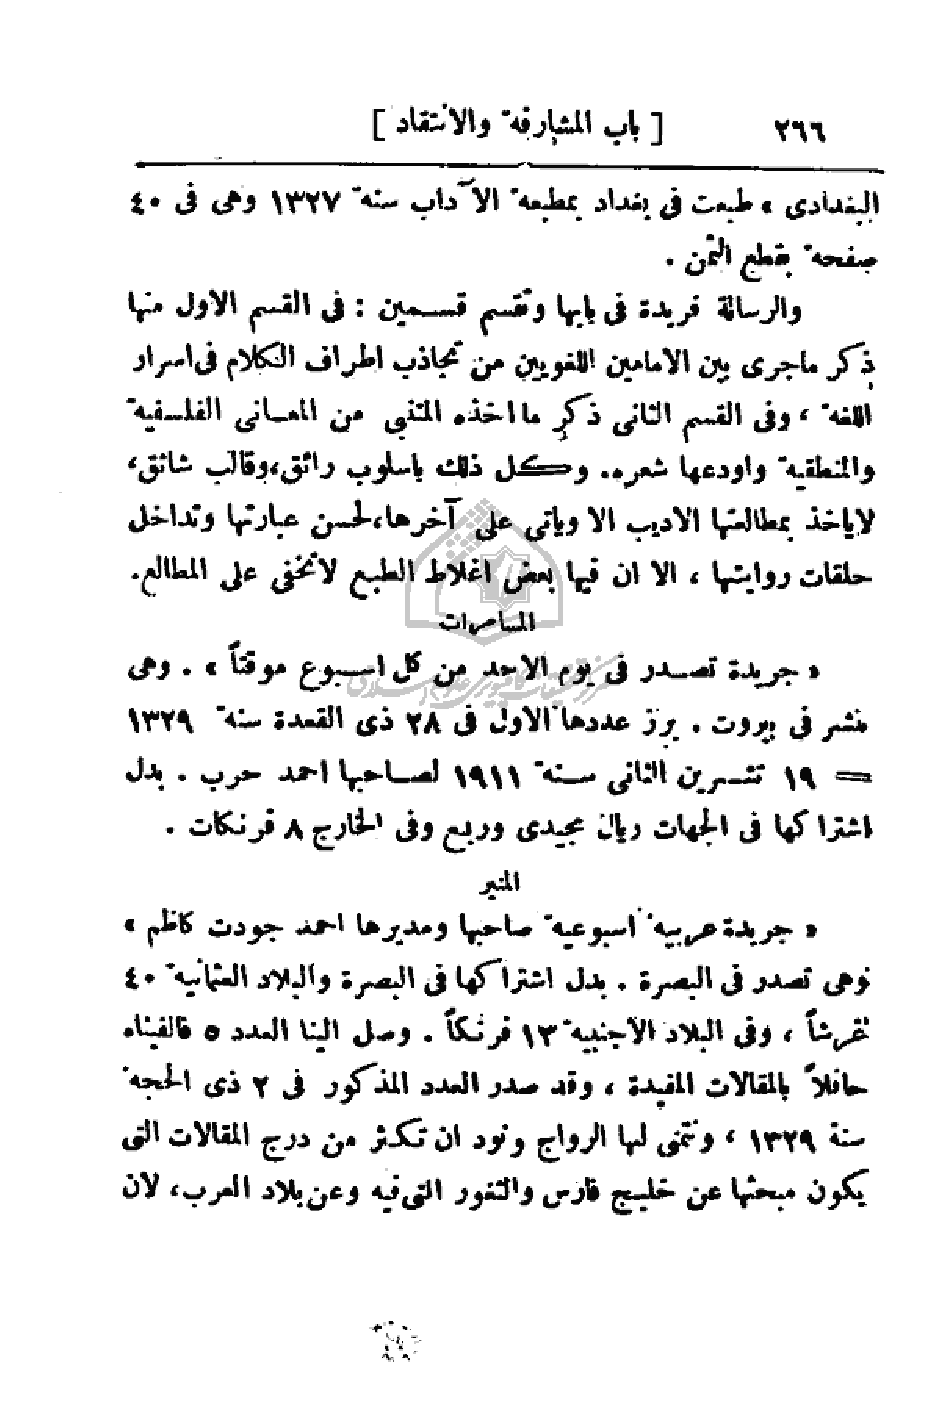 ٢٦٦ [ باب المشارفة والانتقاد ]
البغدادى » طبعت فى بغداد بمطبعة الآداب سنة ١٣٢٧ وهى فى ٤٠
صفحة بقطع الثمن .
والرسالة فريدة فى بابها وتقسم قسمين : فى القسم الاول منها
ذكر ماجرى بين الامامين اللغويين من تجاذب اطراف الكلام فى اسرار
اللغة ، وفى القسم الثانى ذكر ما اخذه المتنبى من المعانى الفلسفية
والمنطقية واودعها شعره. وكل ذلك باسلوب رائق، وقالب شائق،
لاياخذ بمطالعتها الاديب الا وياتى على آخرها، لحسن عبارتها وتداخل
حلقات روايتها ، الا ان فيها بعض اغلاط الطبع لاتخفى على المطالع.
« جريدة تصدر فى يوم الاحد من كل اسبوع موقتاً » . وهى
تنشر فى بيروت . برز عددها الاول فى ٢٨ ذى القعدة سنة ١٣٢٩
= ١٩ تشرين الثانى سنة ١٩١١ لصاحبها احمد حرب . بدل
اشتراكها فى الجهات ريال مجيدى وربع وفى الخارج ٨ فرنكات .
المنير
« جريدة عربية اسبوعية صاحبها ومديرها احمد جودت كاظم »
وهى تصدر فى البصرة . بدل اشتراكها فى البصرة والبلاد العثمانية ٤٠
غرشاً ، وفى البلاد الاجنبية ١٣ فرنكاً . وصل الينا العدد ٥ فالفيناه
حافلاً بالمقالات المفيدة ، وقد صدر العدد المذكور فى ٢ ذى الحجة
سنة ١٣٢٩ ، ونتمنى لها الرواج ونود ان تكثر من درج المقالات التى
يكون مبحثها عن خليج فارس والثغور التى فيه وعن بلاد العرب، لان